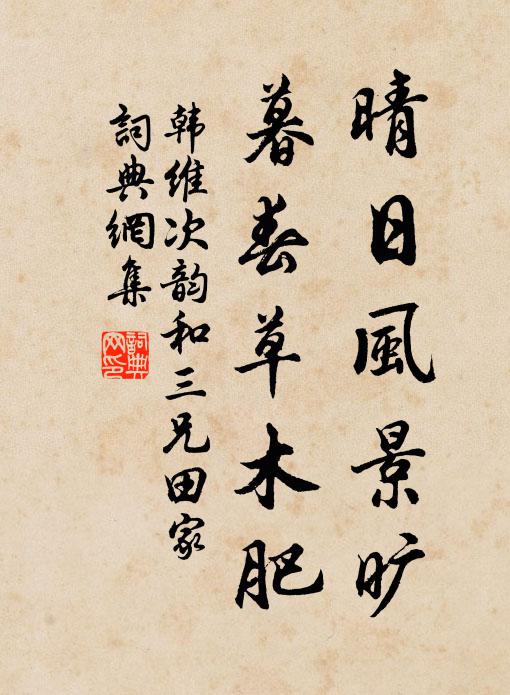 晴日風景旷
暮春草木肥
韩維次韵和三兄田家
詞典網集
詞典網印